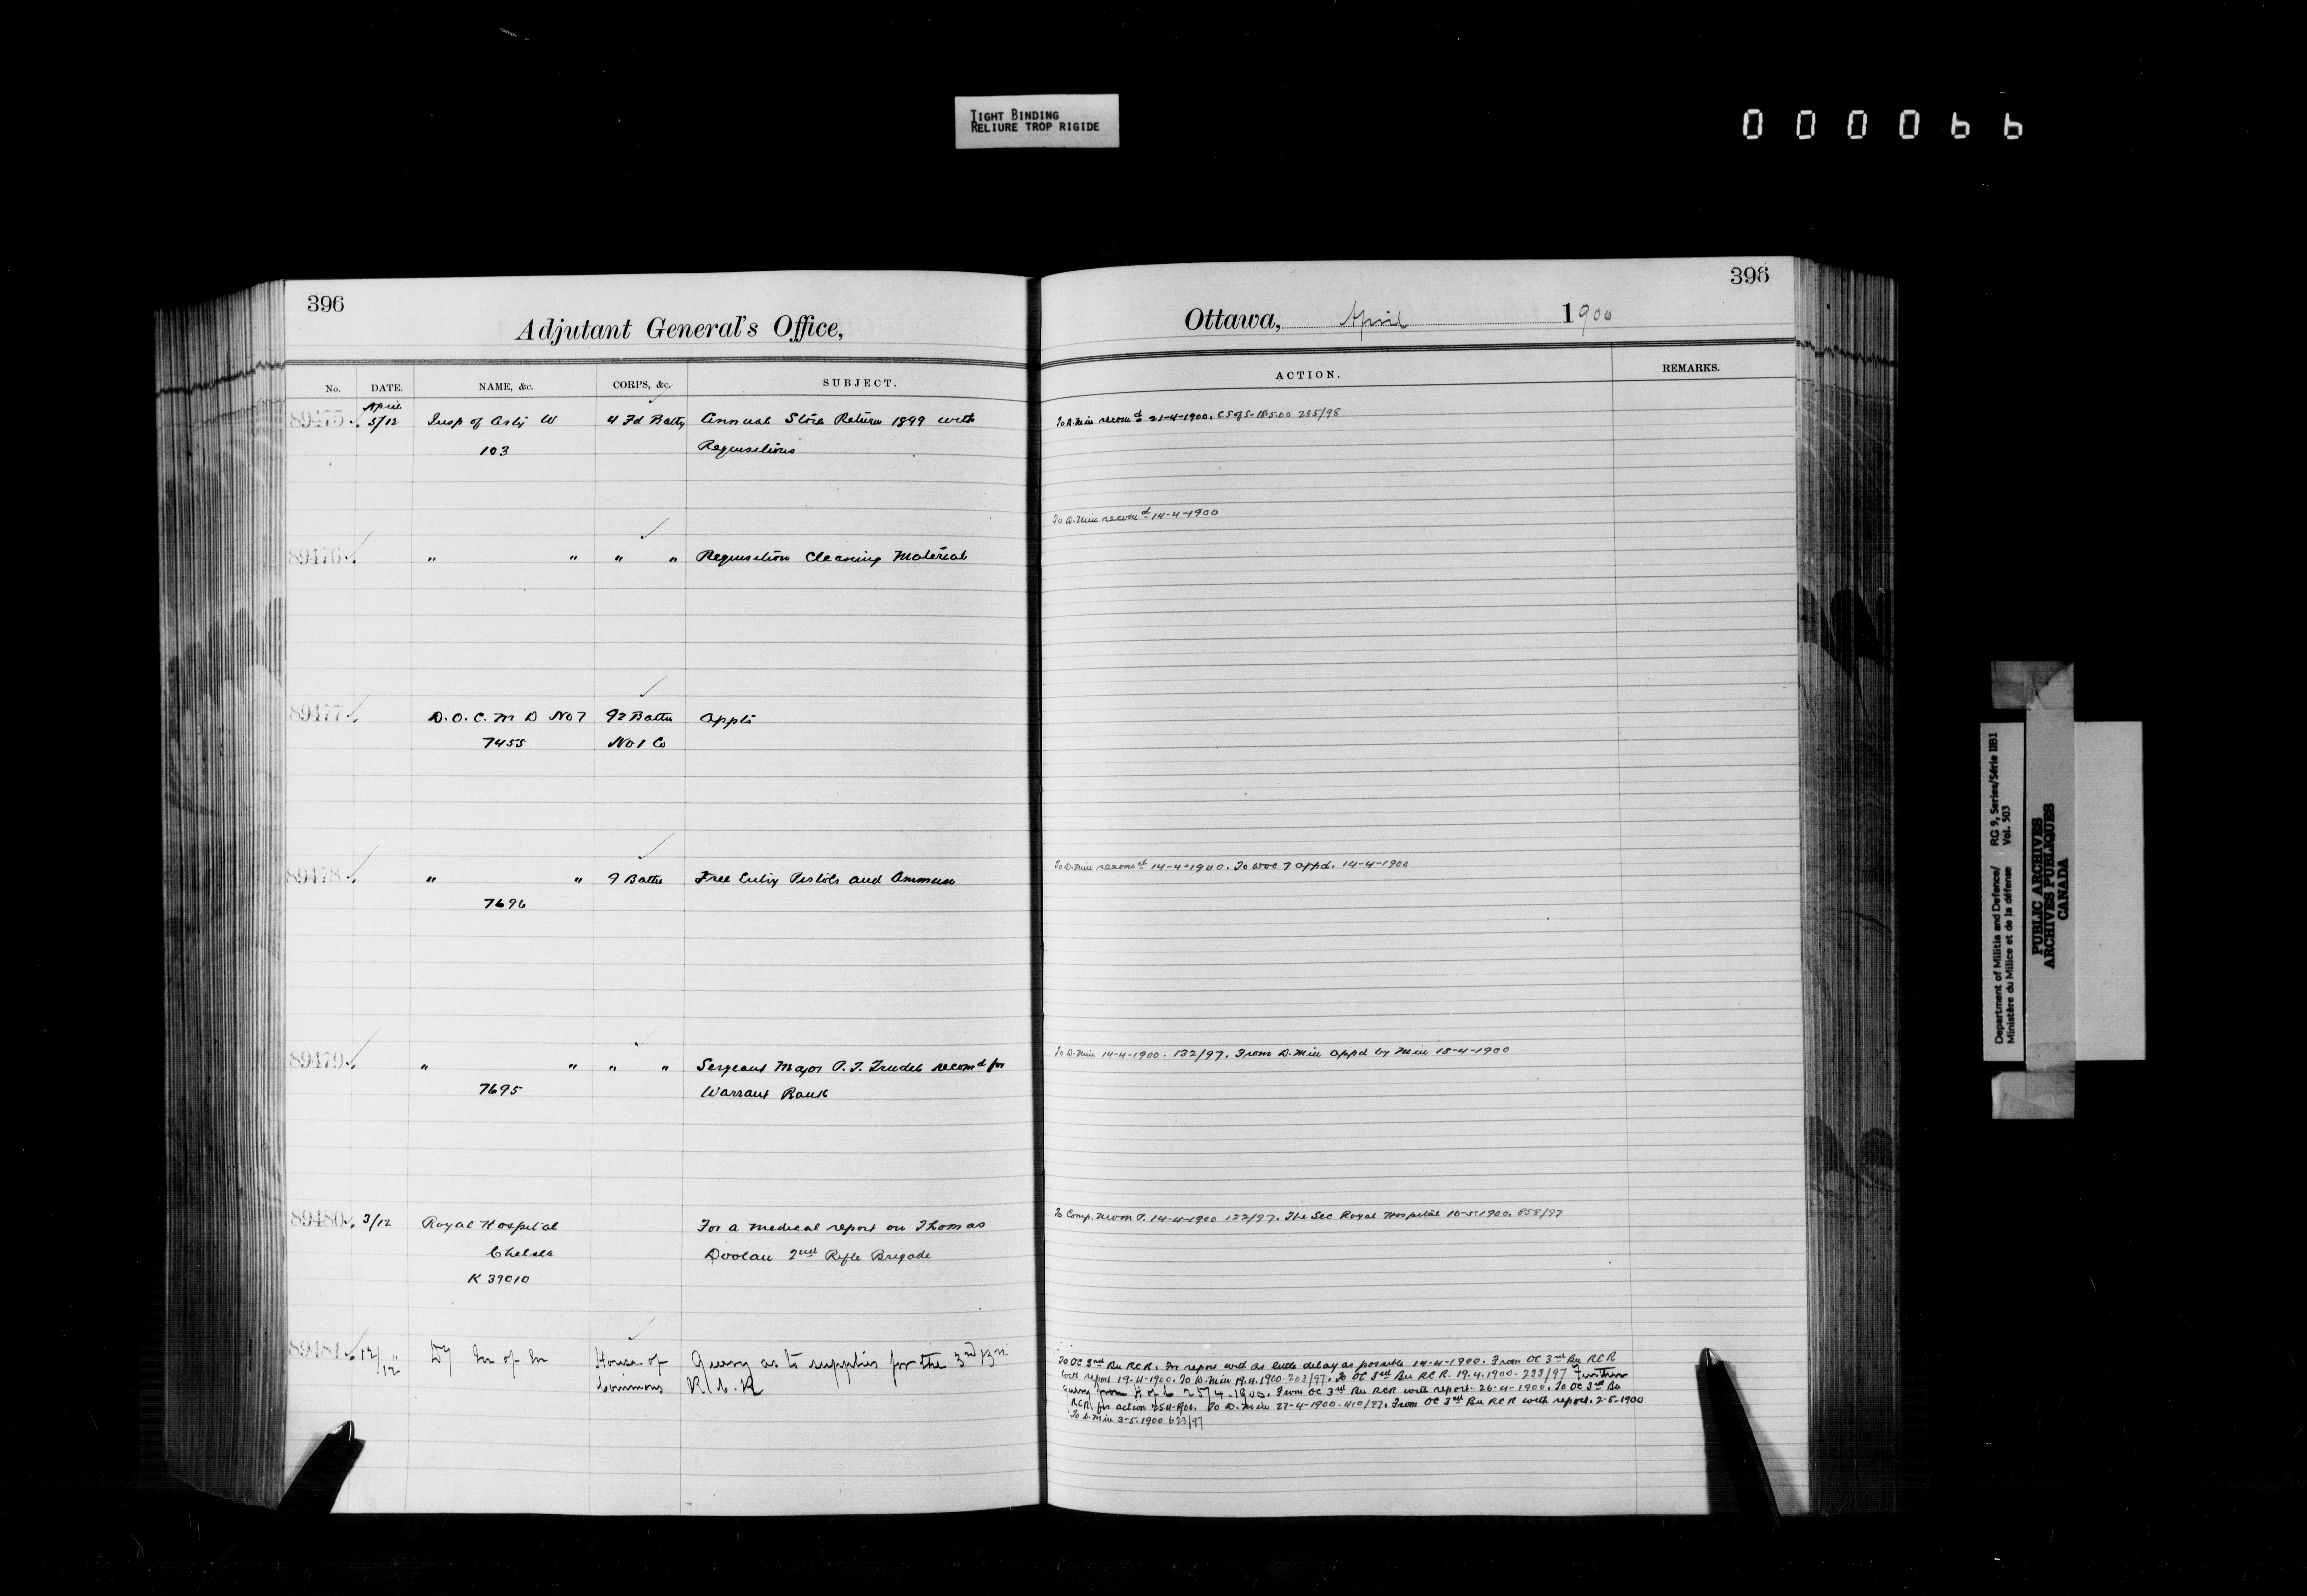 TIGHT BINDING
RELIURE TROP RIGIDE
000066
396
Adjutant General's Office,
No. DATE. NAME, &c. CORPS, &c. SUBJECT.
89475 April 5/12 Insp of Arty W 4 Fd Batty Annual Store Return 1899 with
103 Requisitions
89476 " " " " Requisition Cleaning Material
89477 D.O.C. M D No 7 92 Battn Appts
7455 No 1 Co
89478 " " 9 Battn Free Entry Pistols and Ammun
7696
89479 " " " " Sergeant Major P. T. Trudel recomd for
7695 Warrant Rank
89480 3/12 Royal Hospital For a medical report on Thomas
Chelsea Doolan 2nd Rifle Brigade
K 39010
89481 12/12 Dy M of M House of Query as to supplies for the 3rd Bn
Commons R.C.R
396
Ottawa, April 1900
ACTION. REMARKS.
To D. Min recomd 21-4-1900. 255/98
To D. Min recomd 14-4-1900
To D. Min recomd 14-4-1900. To DOC 7 appd. 14-4-1900
To D. Min 14-4-1900. 132/97. From D. Min appd by Min 18-4-1900
To Comp. 14-4-1900 122/97. The Sec Royal Hospital 10-5-1900. 858/97
To OC 3rd Bn RCR. For report with as little delay as possible 14-4-1900. From OC 3rd Bn RCR
with report 19-4-1900. To D. Min 19.4.1900. 203/97. To OC 3rd Bn RCR. 19.4.1900. 233/97 Further
query from H of C 25/4.1900. From OC 3rd Bn RCR with report. 26-4-1900. To OC 3rd Bn
RCR for action 25.4.1900. To D. Min 27-4-1900. 410/97. From OC 3rd Bn RCR with report. 2-5-1900
To D. Min 3-5.1900 623/97
Department of Militia and Defence/ RG 9, Series/Série IIB1
Ministère du Milice et de la défense Vol. 503
PUBLIC ARCHIVES
ARCHIVES PUBLIQUES
CANADA